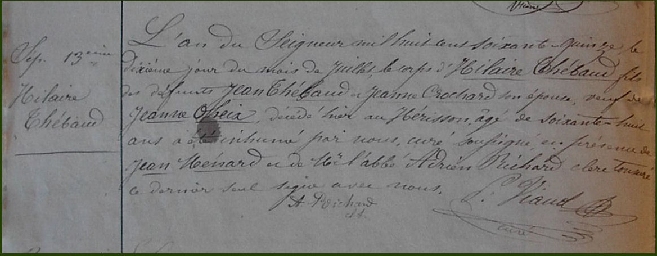 Sep. 13eme
Hilaire
Thébaud
L'an du Seigneur mil huit cent soixante-quinze le
dixième jour du mois de Juillet, le corps d'Hilaire Thébaud, fils
des défunts Jean Thébaud et Jeanne Crochard son épouse, veuf de
Jeanne, décédé hier au Hérisson, agé de soixante-huit
ans a été inhumé par nous, curé soussigné en présence de
Jean Menard et de Mr l'abbé Adrien Richard clerc tonsuré
ce dernier seul signe avec nous.
A. Richard
L. Viaud
curé